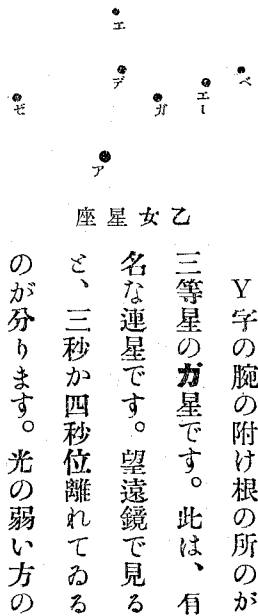 エ
デ
ベ
エー
ガ
ゼ
ア
乙女星座
Y字の腕の附け根の所のが
三等星のガ星です。此は、有
名な連星です。望遠鏡で見る
と、三秒か四秒位離れてゐる
のが分ります。光の弱い方の